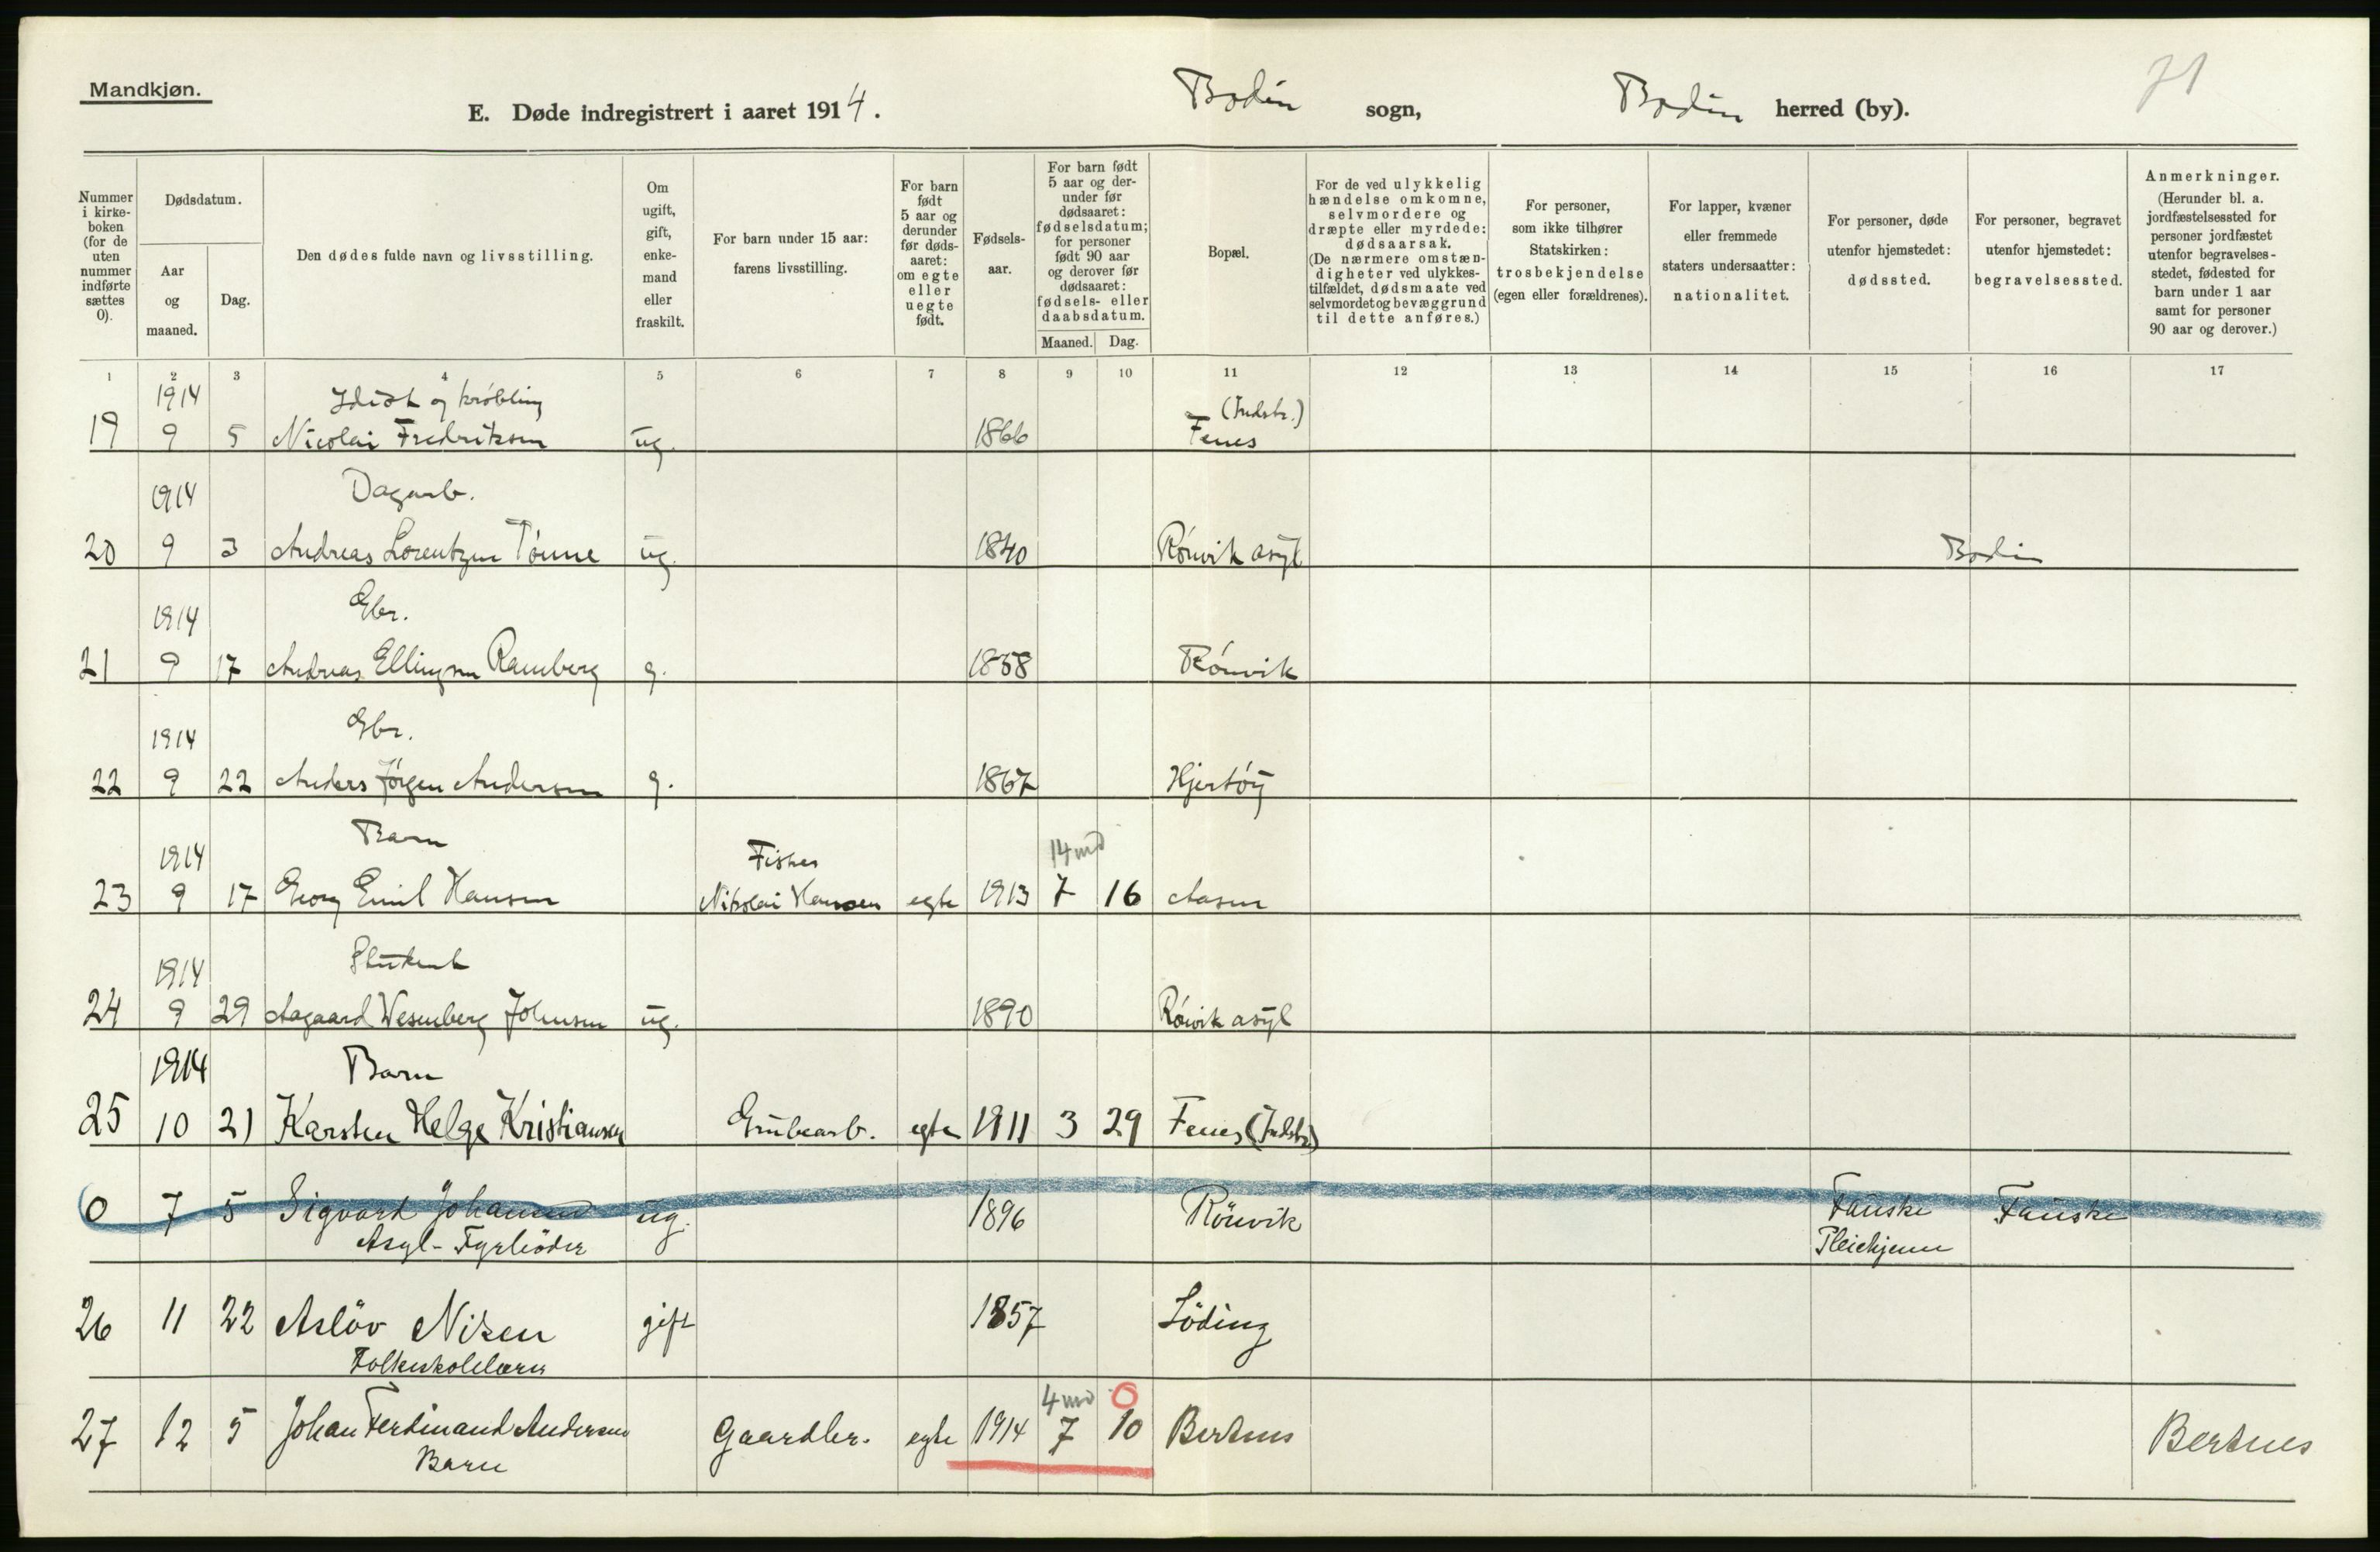 Mandkjøn.
71
E. Døde indregistrert i aaret 1914. Bodin sogn, Bodin herred (by).
Nummer i kirke-boken (for de uten nummer indførte sættes 0).
Dødsdatum.
Aar og maaned.
Dag.
Den dødes fulde navn og livsstilling.
Om ugift, gift, enke-mand eller fraskilt.
For barn under 15 aar: farens livsstilling.
For barn født 5 aar og derunder før døds-aaret: om egte eller uegte født.
Fødsels-aar.
For barn født 5 aar og der-under før dødsaaret: fødselsdatum; for personer født 90 aar og derover før dødsaaret: fødsels- eller daabsdatum.
Maaned. Dag.
Bopæl.
For de ved ulykkelig hændelse omkomne, selvmordere og dræpte eller myrdede: dødsaarsak. (De nærmere omstæn-digheter ved ulykkes-tilfældet, dødsmaate ved selvmordet og bevæggrund til dette anføres.)
For personer, som ikke tilhører Statskirken: trosbekjendelse (egen eller forældrenes).
For lapper, kvæner eller fremmede staters undersaatter: nationalitet.
For personer, døde utenfor hjemstedet: dødssted.
For personer, begravet utenfor hjemstedet: begravelsessted.
Anmerkninger. (Herunder bl. a. jordfæstelsessted for personer jordfæstet utenfor begravelses-stedet, fødested for barn under 1 aar samt for personer 90 aar og derover.)
1 2 3 4 5 6 7 8 9 10 11 12 13 14 15 16 17
1914 Idiot og krøbling (Indstr.)
19 9 5 Nicolai Fredriksen ug. 1866 Fenes
1914 Dagarb.
20 9 3 Andreas Lorentzen Tønne ug. 1840 Rónvik asyl Bodin
1914 Gbr.
21 9 17 Andreas Ellingsen Ramberg g. 1858 Rónvik
1914 Gbr.
22 9 22 Anders Jörgen Andersen g. 1867 Hjertöy
1914 Barn Fisker 14 md
23 9 17 Georg Emil Hansen Nikolai Hansen egte 1913 7 16 Aasen
1914 Student
24 9 29 Aagaard Wesenberg Johnsen ug. 1890 Rónvik asyl
1914 Barn
25 10 21 Karsten Helge Kristiansen Grubearb. egte 1911 3 29 Fenes (Indstr.)
0 7 5 Sigvard Johansen ug. 1896 Rönvik Fauske Fauske
Asyl-Fyrböder Pleiehjem
26 11 22 Aslöv Nilsen gift 1857 Löding
Folkeskolelærer
4 md 0
27 12 5 Johan Ferdinand Andersen Gaardbr. egte 1914 7 10 Bertnes Bertnes
Barn